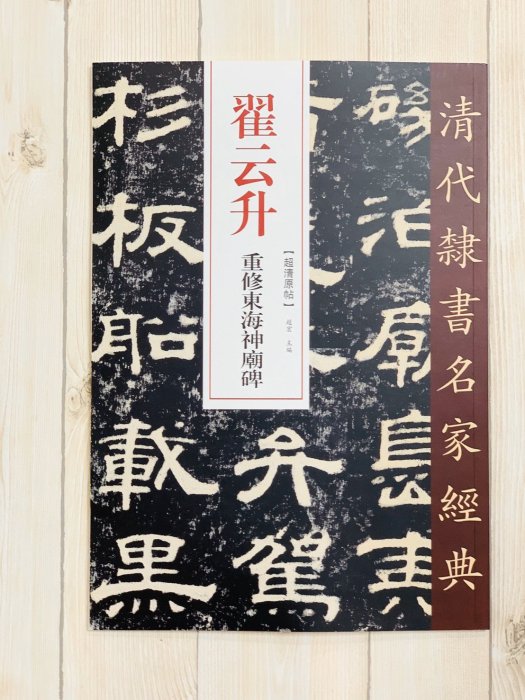 清代隸書名家經典
翟云升
【超清原帖】
趙宏 主編
重修東海神廟碑
杉板船載黑
弁駕
泊廟島其